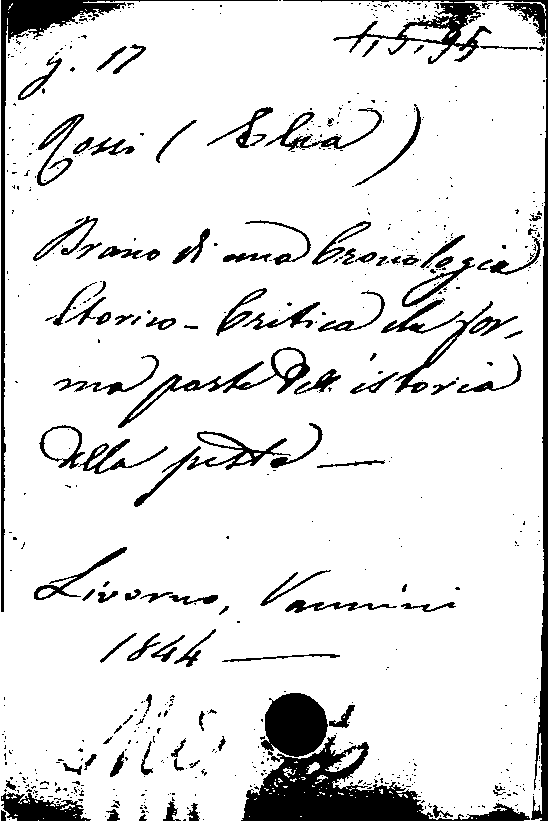 g. 17 1,5,95
Rossi (Elia)
Brano di una Cronologia
Storico-Critica che for-
ma parte dell'istoria
della peste —
Livorno, Vannini
1844 —
Mis